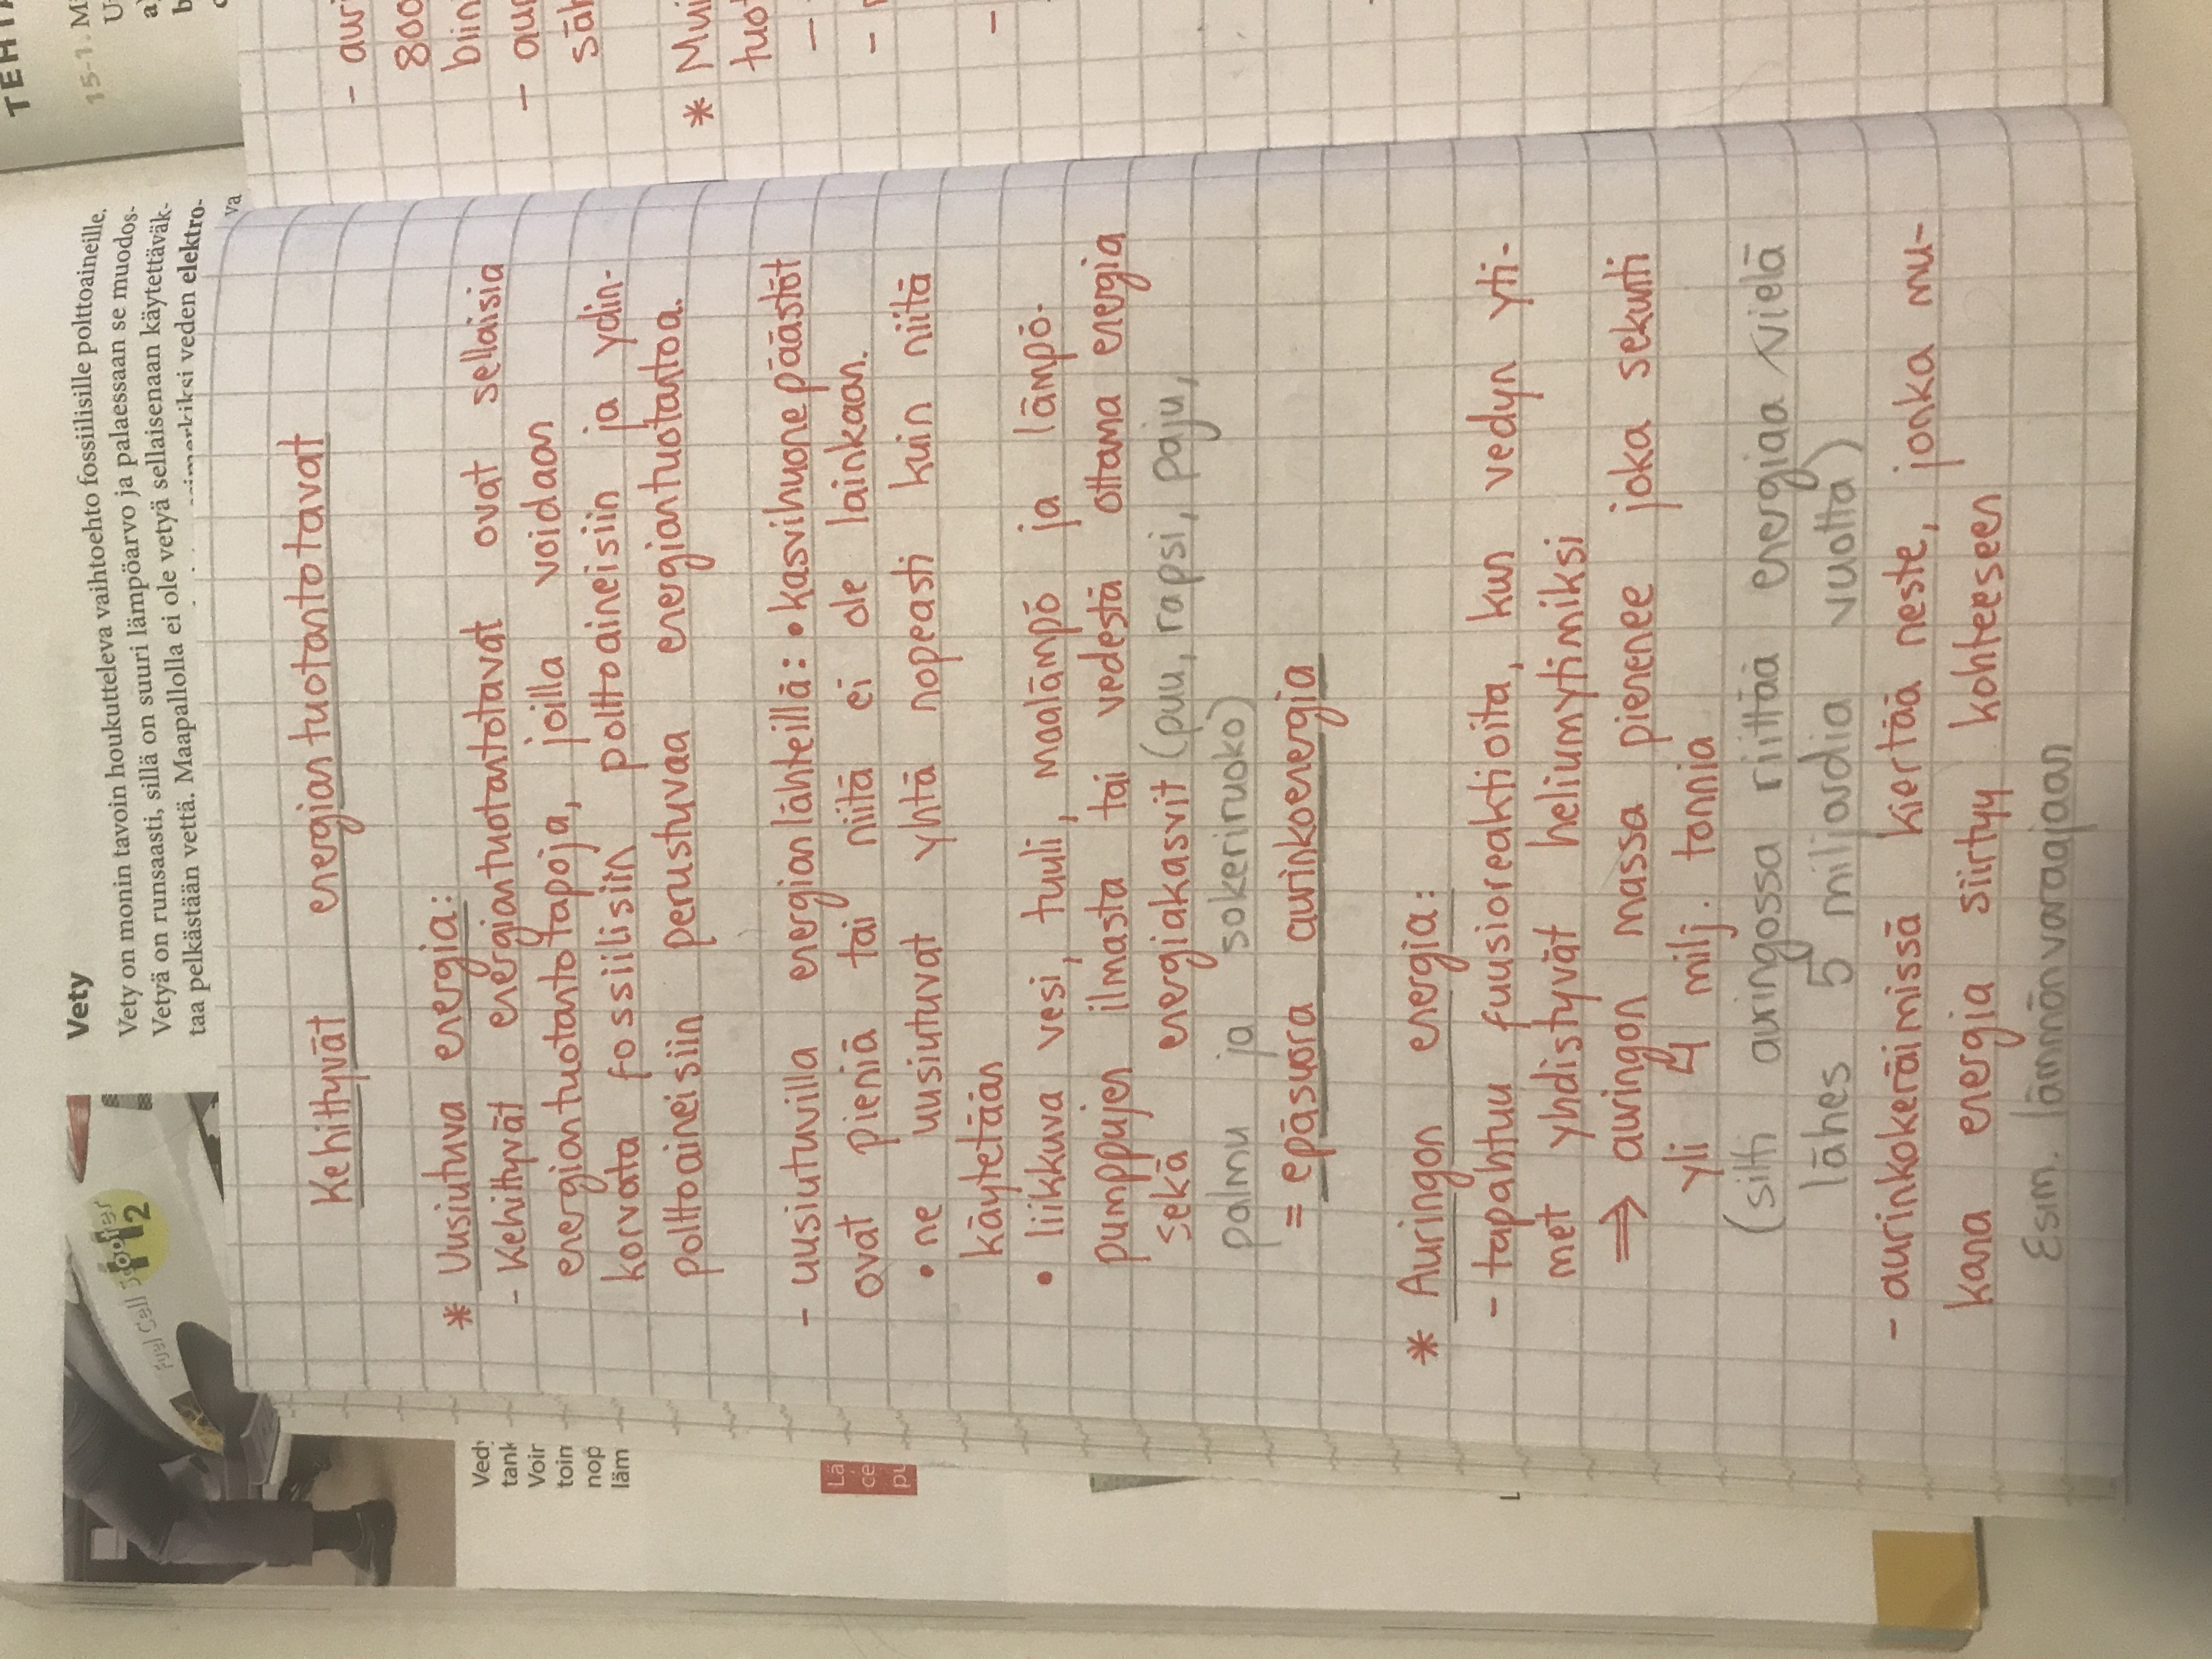 Vety
Vety on monin tavoin houkutteleva vaihtoehto fossiilisille polttoaineille.
Vetyä on runsaasti, sillä on suuri lämpöarvo ja palaessaan se muodos-
taa pelkästään vettä. Maapallolla ei ole vetyä sellaisenaan käytettäväk-
veden elektro-
va
Fuel Cell Scooter
H2
Kehittyvät energiantuotantotavat
* Uusiutuva energia:
- Kehittyvät energiantuotantotavat ovat sellaisia
energiantuotantotapoja, joilla voidaan
korvata fossiilisiin polttoaineisiin ja ydin-
polttoaineisiin perustuvaa energiantuotantoa.
- uusiutuvilla energianlähteillä: • kasvihuonepäästöt
ovat pieniä tai niitä ei ole lainkaan.
• ne uusiutuvat yhtä nopeasti kuin niitä
käytetään
• liikkuva vesi, tuuli, maalämpö ja lämpö-
pumppujen ilmasta tai vedestä ottama energia
sekä energiakasvit (puu, rapsi, paju,
palmu ja sokeriruoko)
= epäsuora aurinkoenergia
* Auringon energia:
- tapahtuu fuusioreaktioita, kun vedyn yti-
met yhdistyvät heliumytimiksi
⇒ auringon massa pienenee joka sekunti
yli 4 milj. tonnia
(silti auringossa riittää energiaa vielä
lähes 5 miljardia vuotta)
- aurinkokeräimissä kiertää neste, jonka mu-
kana energia siirtyy kohteeseen
Esim. lämmönvaraajaan
TEHTÄ
15-1. Mi
a)
b
- auri
800
- aur
säh
* Mui
tuot
Vedy
tank
Voir
toin
nop
läm
Lä
ce
pu